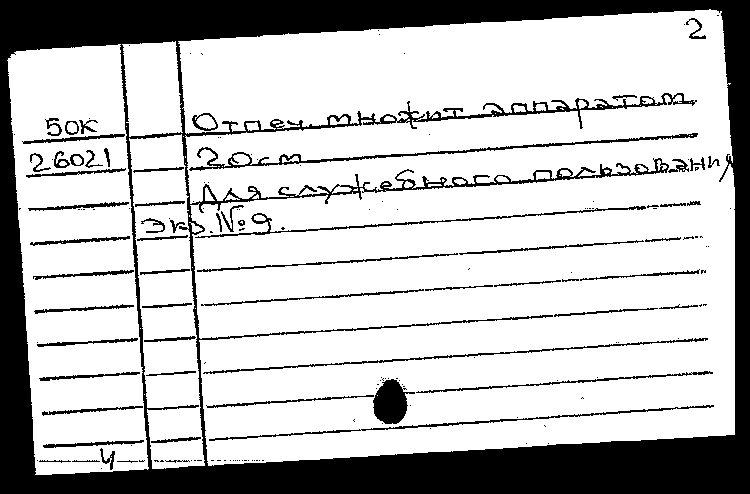 2
50К Отпеч. множит аппаратом.
26021 20см
Для служебного пользования
Экз. №9.
4